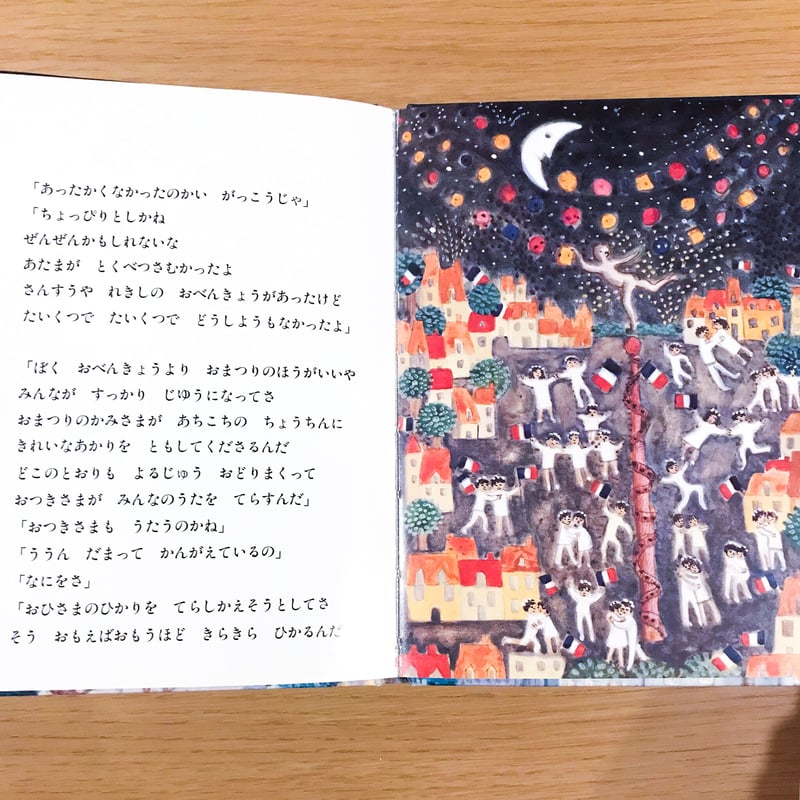 「あったかくなかったのかい　がっこうじゃ」
「ちょっぴりとしかね
ぜんぜんかもしれないな
あたまが　とくべつさむかったよ
さんすうや　れきしの　おべんきょうがあったけど
たいくつで　たいくつで　どうしようもなかったよ」
「ぼく　おべんきょうより　おまつりのほうがいいや
みんなが　すっかり　じゆうになってさ
おまつりのかみさまが　あちこちの　ちょうちんに
きれいなあかりを　ともしてくださるんだ
どこのとおりも　よるじゅう　おどりまくって
おつきさまが　みんなのうたを　てらすんだ」
「おつきさまも　うたうのかね」
「ううん　だまって　かんがえているの」
「なにをさ」
「おひさまのひかりを　てらしかえそうとしてさ
そう　おもえばおもうほど　きらきら　ひかるんだ